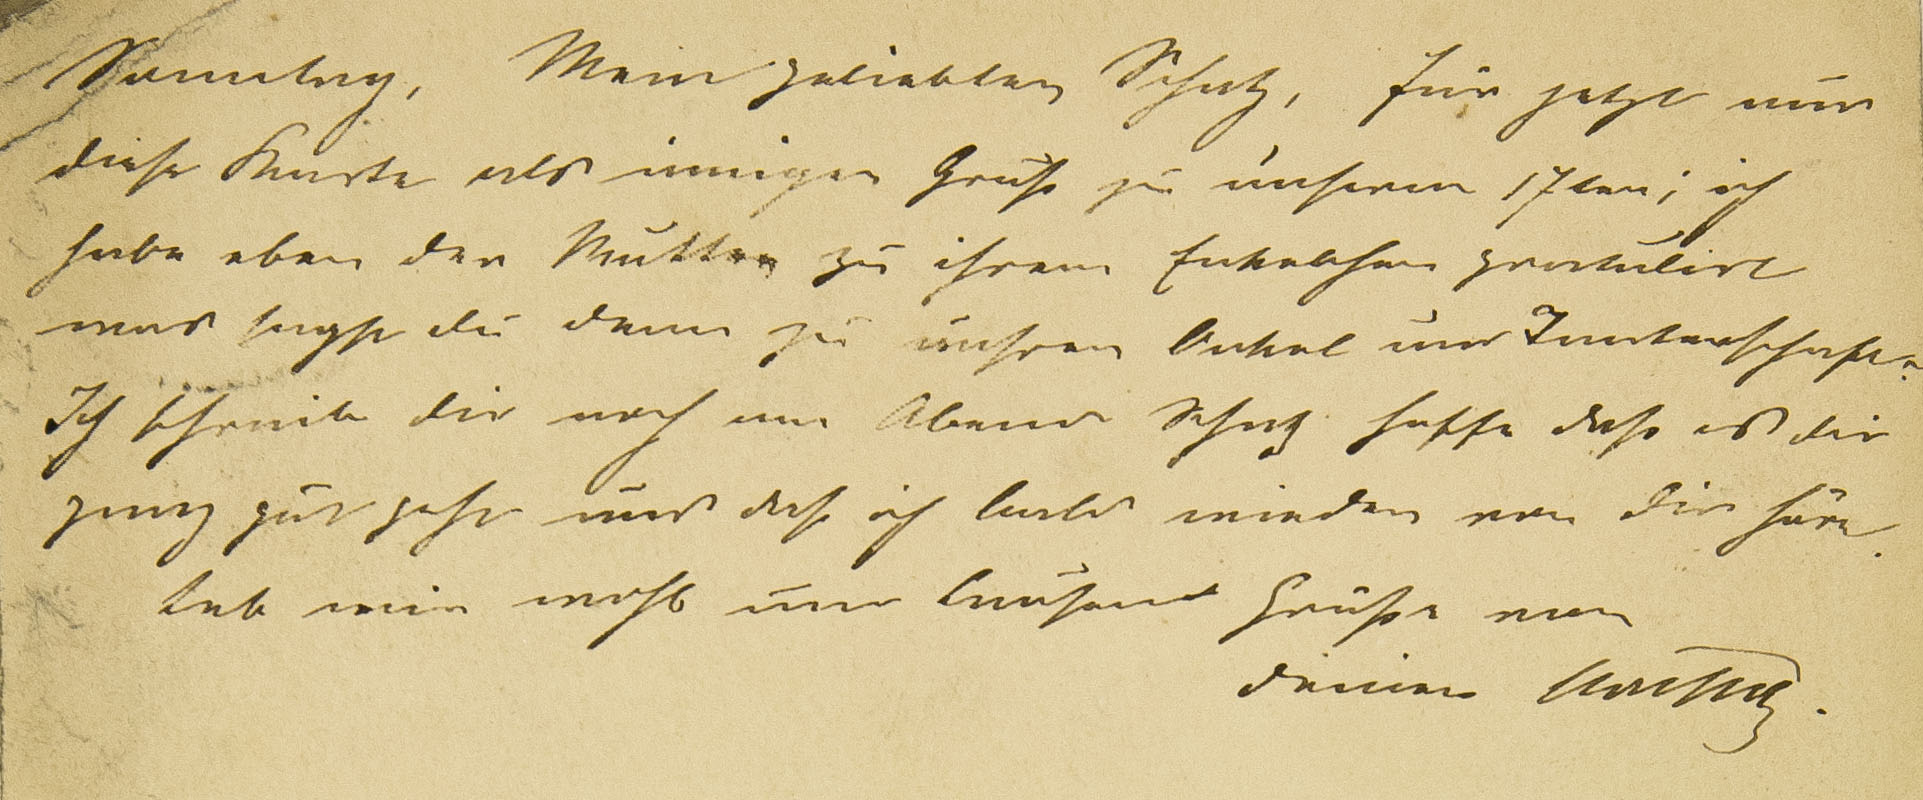 Samstag, Mein geliebter Schatz, für jetzt nur
diese Karte als innigen Gruß zu unserem 17ten; ich
habe eben der Mutter zu ihrem Enkelchen gratulirt
was sagst du denn zu unsrer Onkel und Tantenschaft.
Ich schreibe dir noch am Abend Schatz hoffe daß es dir
ganz gut geht und daß ich bald wieder von dir höre.
Leb mir wohl und tausend Grüße von
deinem